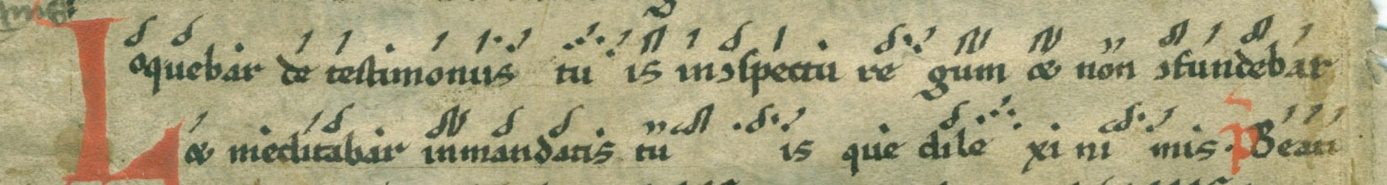 Loquebar de testimoniis tu is inɔspectu re gum & non ɔfundebar
& meditabar inmandatis tu is que dile xi ni mis. P Beati